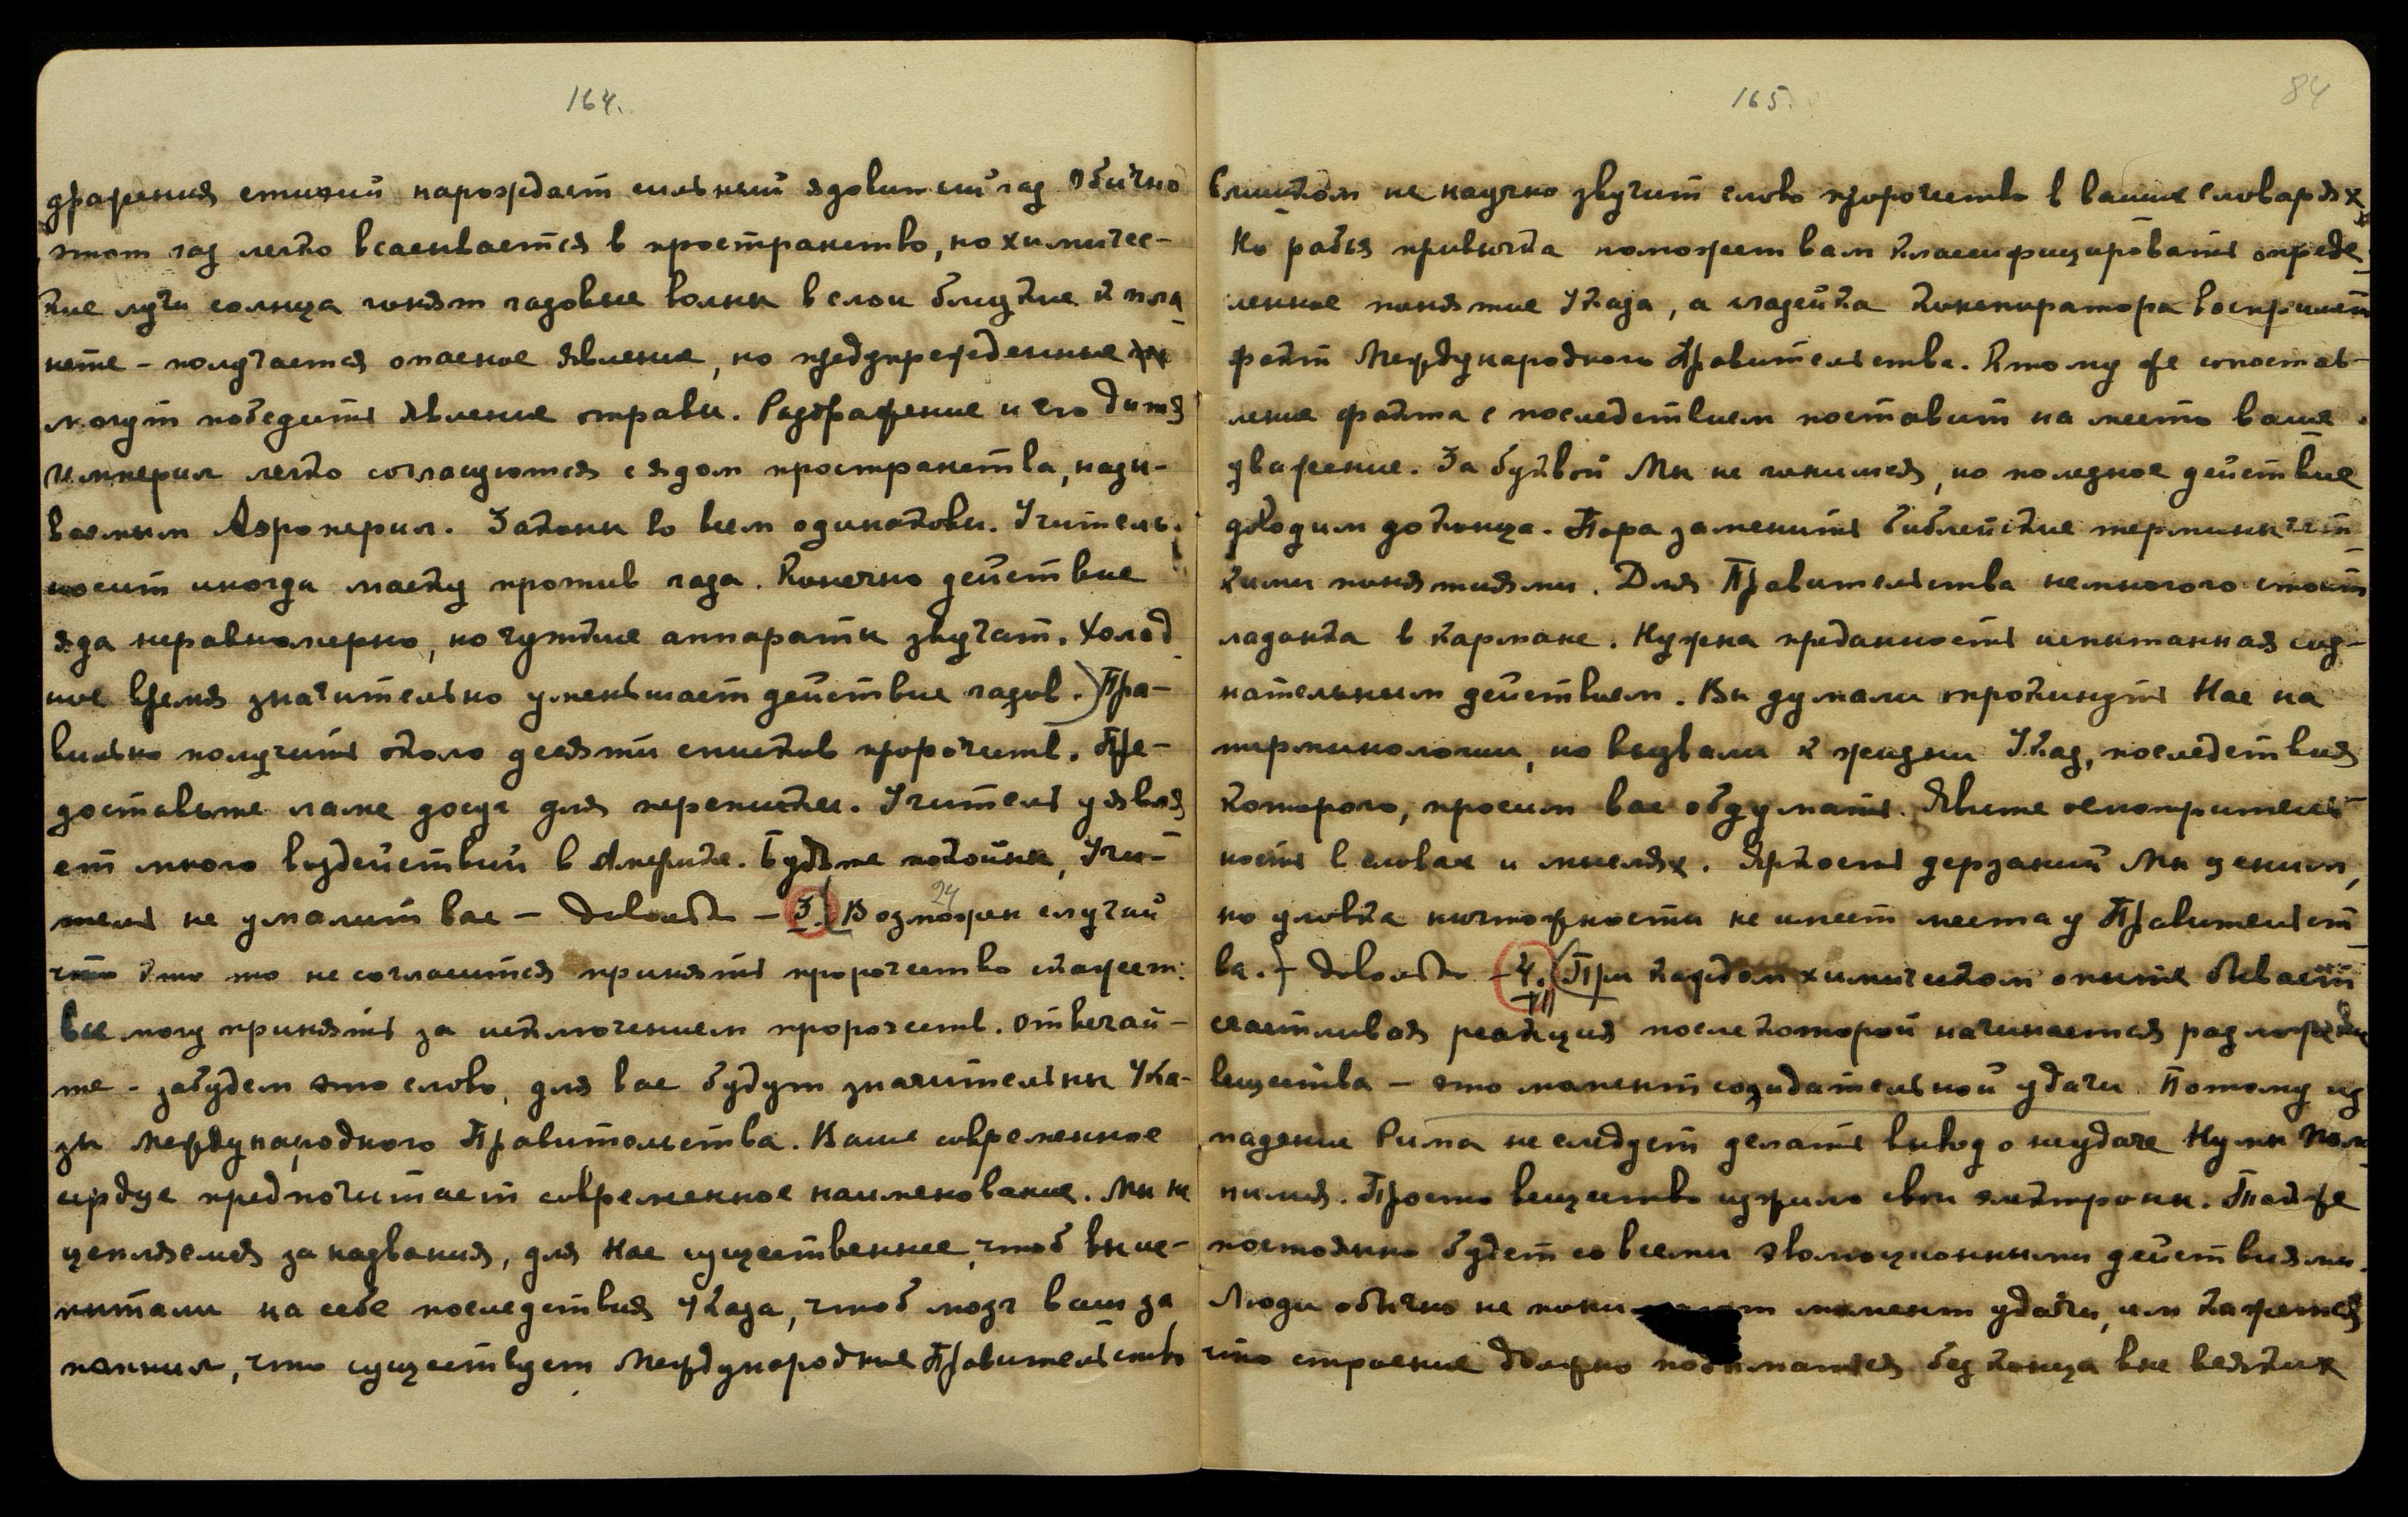 164.
дражения стихий нарождает сильный ядовитый газ Обычно
этот газ легко всасывается в пространство, но химичес-
кие лучи солнца гонят газовые волны в слои близкие к пла
нете – получается опасное явление, но предупрежденные
могут победить явление отравы. Раздражение и его дитя
Империл легко согласуются с ядом пространства, назы-
ваемым Аэроперил. Законы во всем одинаковы. Учитель
носит иногда маску против газа. Конечно действие
яда неравномерно, но чуткие аппараты звучат. Холод
ное время значительно уменьшает действие газов.) Пра-
вильно получить около десяти списков пророчеств. Пре-
доставьте ламе досуг для переписки. Учитель уявля
ет много воздействий в Америке. Будьте покойны, Учи-
тель не умалит вас – довольно – 3. (Возможен случай
24
кто то не согласится принять пророчество скажет:
все могу принять за исключением пророчеств. Отвечай-
те – забудем это слово, для вас будут значительны Ука-
зы Международного Правительства. Ваше современное
сердце предпочитает современное наименование. Мы не
цепляемся за названия, для Нас существеннее, чтоб вы ис-
пытали на себе последствия Указа, чтоб мозг ваш за
помнил, что существует Международное Правительство
165.
84
Слишком не научно звучит слово пророчество в ваших словарях
Но рабья привычка поможет вам классифицировать опреде
ленное понятие Указа, а ищейка конспиратора воспримет
факт Международного Правительства. К тому же сопостав-
ление факта с последствием поставит на место ваше
уважение. За буквой Мы не гонимся, но полезное действие
доводим до конца. Пора заменить библейские термины чет
кими понятиями. Для Правительства немногого стоит
ладонка в кармане. Нужна преданность испытанная соз-
нательным действием. Вы думали опрокинуть Нас на
терминологии, но вызвали к жизни Указ, последствия
которого, просим вас обдумать. Явите осмотритель-
ность в словах и мыслях. Яркость дерзаний Мы ценим,
но уловка ничтожности не имеет места у Правительст
ва.) – довольно – 4. (При каждом химическом опыте бывает
VII
счастливая реакция после которой начинается разложение
вещества – это момент созидательной удачи. Потому из
падение Рима не следует делать вывод о неудаче Нумы Пом
пилия. Просто вещество изжило свои электроны. Так же
постоянно будет со всеми эволюционными действиями.
Люди обычно не момент удачи, им кажется
что строение должно подыматься без конца вне всяких